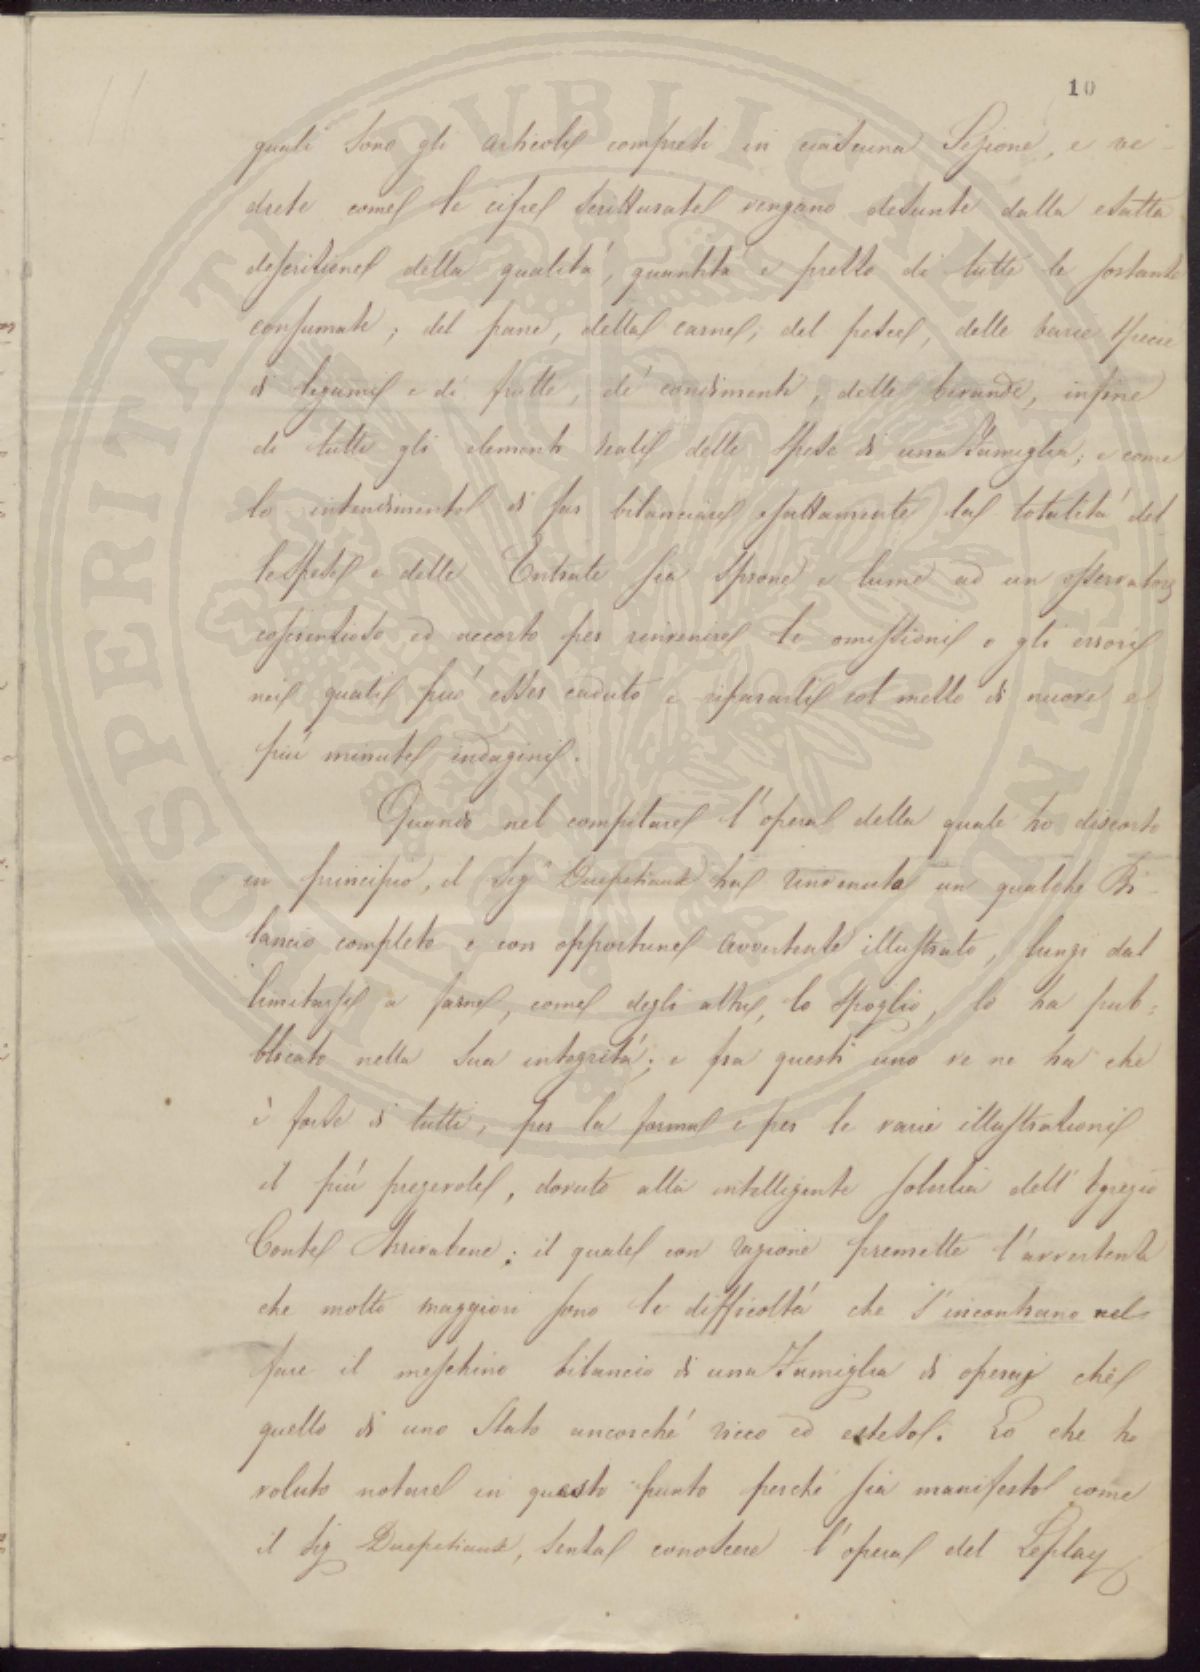 10
quali sono gli articoli compresi in ciascuna Sezione, e ve-
drete come le cifre scritturate vengano desunte dalla esatta
descrizione della qualità, quantità e prezzo di tutte le sostanze
consumate; del pane, della carne, del pesce, delle varie specie
di legumi e di frutte, de' condimenti, delle bevande, infine
di tutti gli elementi reali delle spese di una Famiglia; e come
lo intendimento di far bilanciare esattamente la totalità del-
le spese e delle Entrate sia sprone e lume ad un osservatore
coscienzioso ed accorto per rinvenire le omissioni o gli errori
nei quali può esser caduto e ripararli col mezzo di nuove e
più minute indagini.
Quando nel compilare l'opera della quale ho discorso
in principio, il Sig.r Ducpetiaux ha rinvenuta un qualche Bi-
lancio completo e con opportune avvertenze illustrato, lungi dal
limitarsi a farne, come degli altri, lo spoglio, lo ha pub=
blicato nella sua integrità; e fra questi uno ve ne ha che
è forse di tutti, per la forma e per le varie illustrazioni
il più pregevole, dovuto alla intelligente solerzia dell'egregio
Conte Arrivabene; il quale con ragione premette l'avvertenza
che molto maggiori sono le difficoltà che s'incontrano nel
fare il meschino bilancio di una Famiglia di operaj che
quello di uno Stato ancorché ricco ed esteso. Lo che ho
voluto notare in questo punto perché sia manifesto come
il Sig Ducpetiaux, senza conoscere l'opera del Leplay
ASPERITATI PUBLICAE